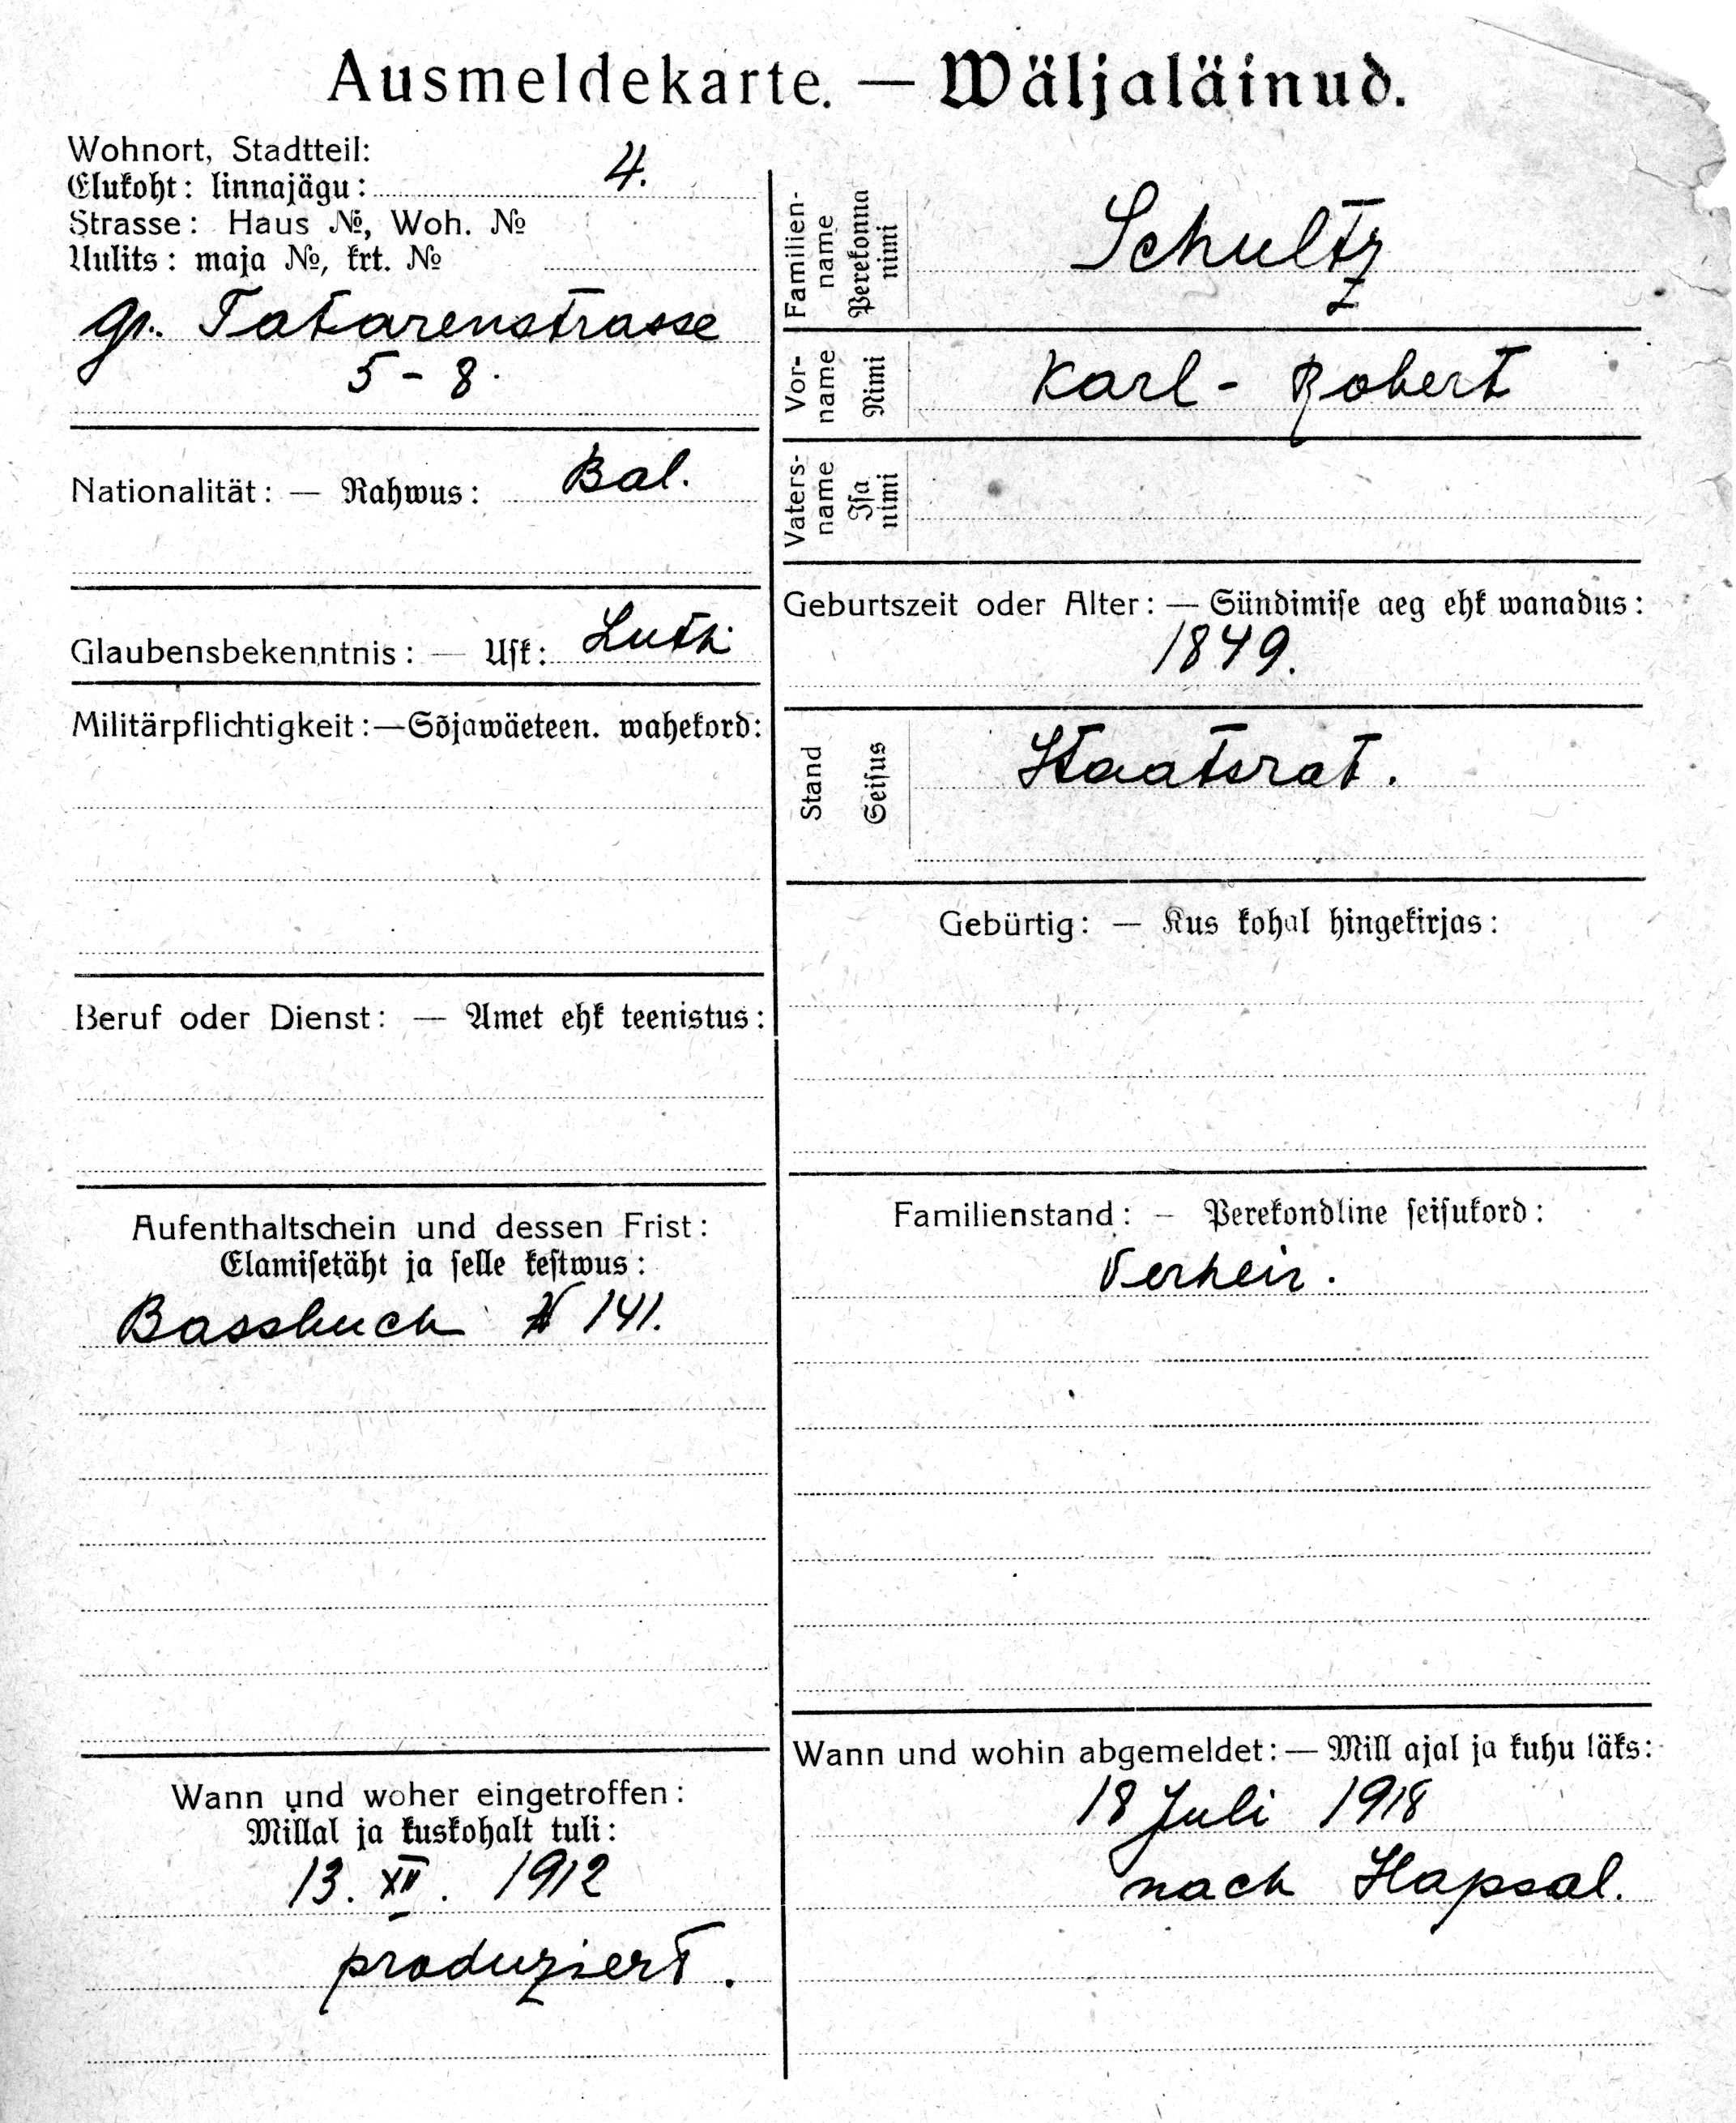 Ausmeldekarte. — Wäljaläinud.
Wohnort, Stadtteil:
Elukoht: linnajägu: 4.
Strasse: Haus №, Woh. №
Uulits: maja №, krt. №
gr. Tatarenstrasse
5 - 8.
Nationalität: — Rahwus: Bal.
Glaubensbekenntnis: — Usk: Luth.
Militärpflichtigkeit: — Sõjawäeteen. wahekord:
Beruf oder Dienst: — Amet ehk teenistus:
Aufenthaltschein und dessen Frist:
Elamisetäht ja selle kestwus:
Bassbuch № 141.
Wann und woher eingetroffen:
Millal ja kuskohalt tuli:
13. XII. 1912
produziert.
Familien-
name
Perekonna
nimi
Schultz
Vor-
name
Nimi
Karl - Robert
Vaters-
name
Isa
nimi
Geburtszeit oder Alter: — Sündimise aeg ehk wanadus:
1849.
Stand
Seisus
Staatsrat.
Gebürtig: — Kus kohal hingekirjas:
Familienstand: — Perekondline seisukord:
Verheir.
Wann und wohin abgemeldet: — Mill ajal ja kuhu läks:
18 Juli 1918
nach Hapsal.